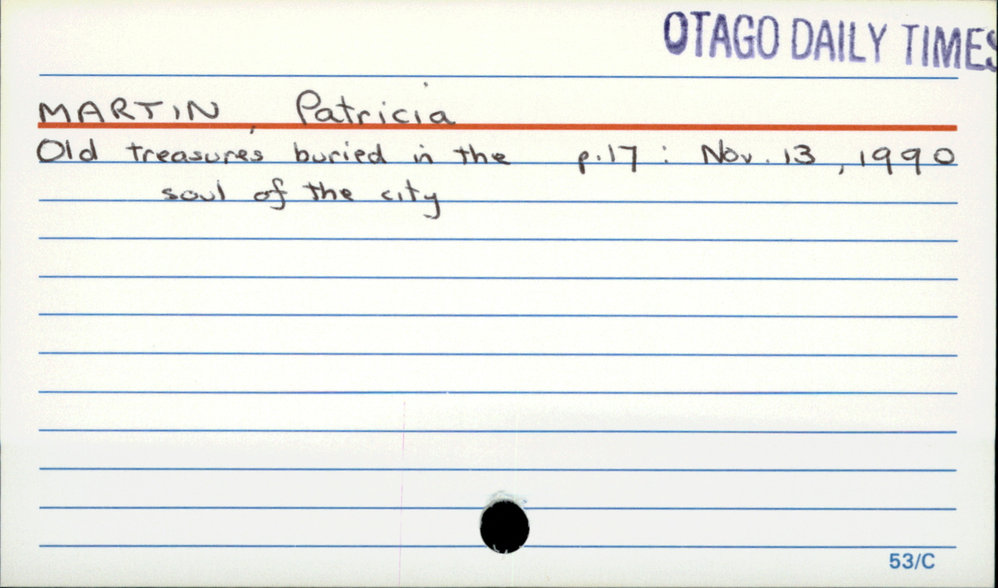 OTAGO DAILY TIMES
MARTIN, Patricia
Old treasures buried in the p.17 : Nov. 13, 1990
soul of the city
53/C